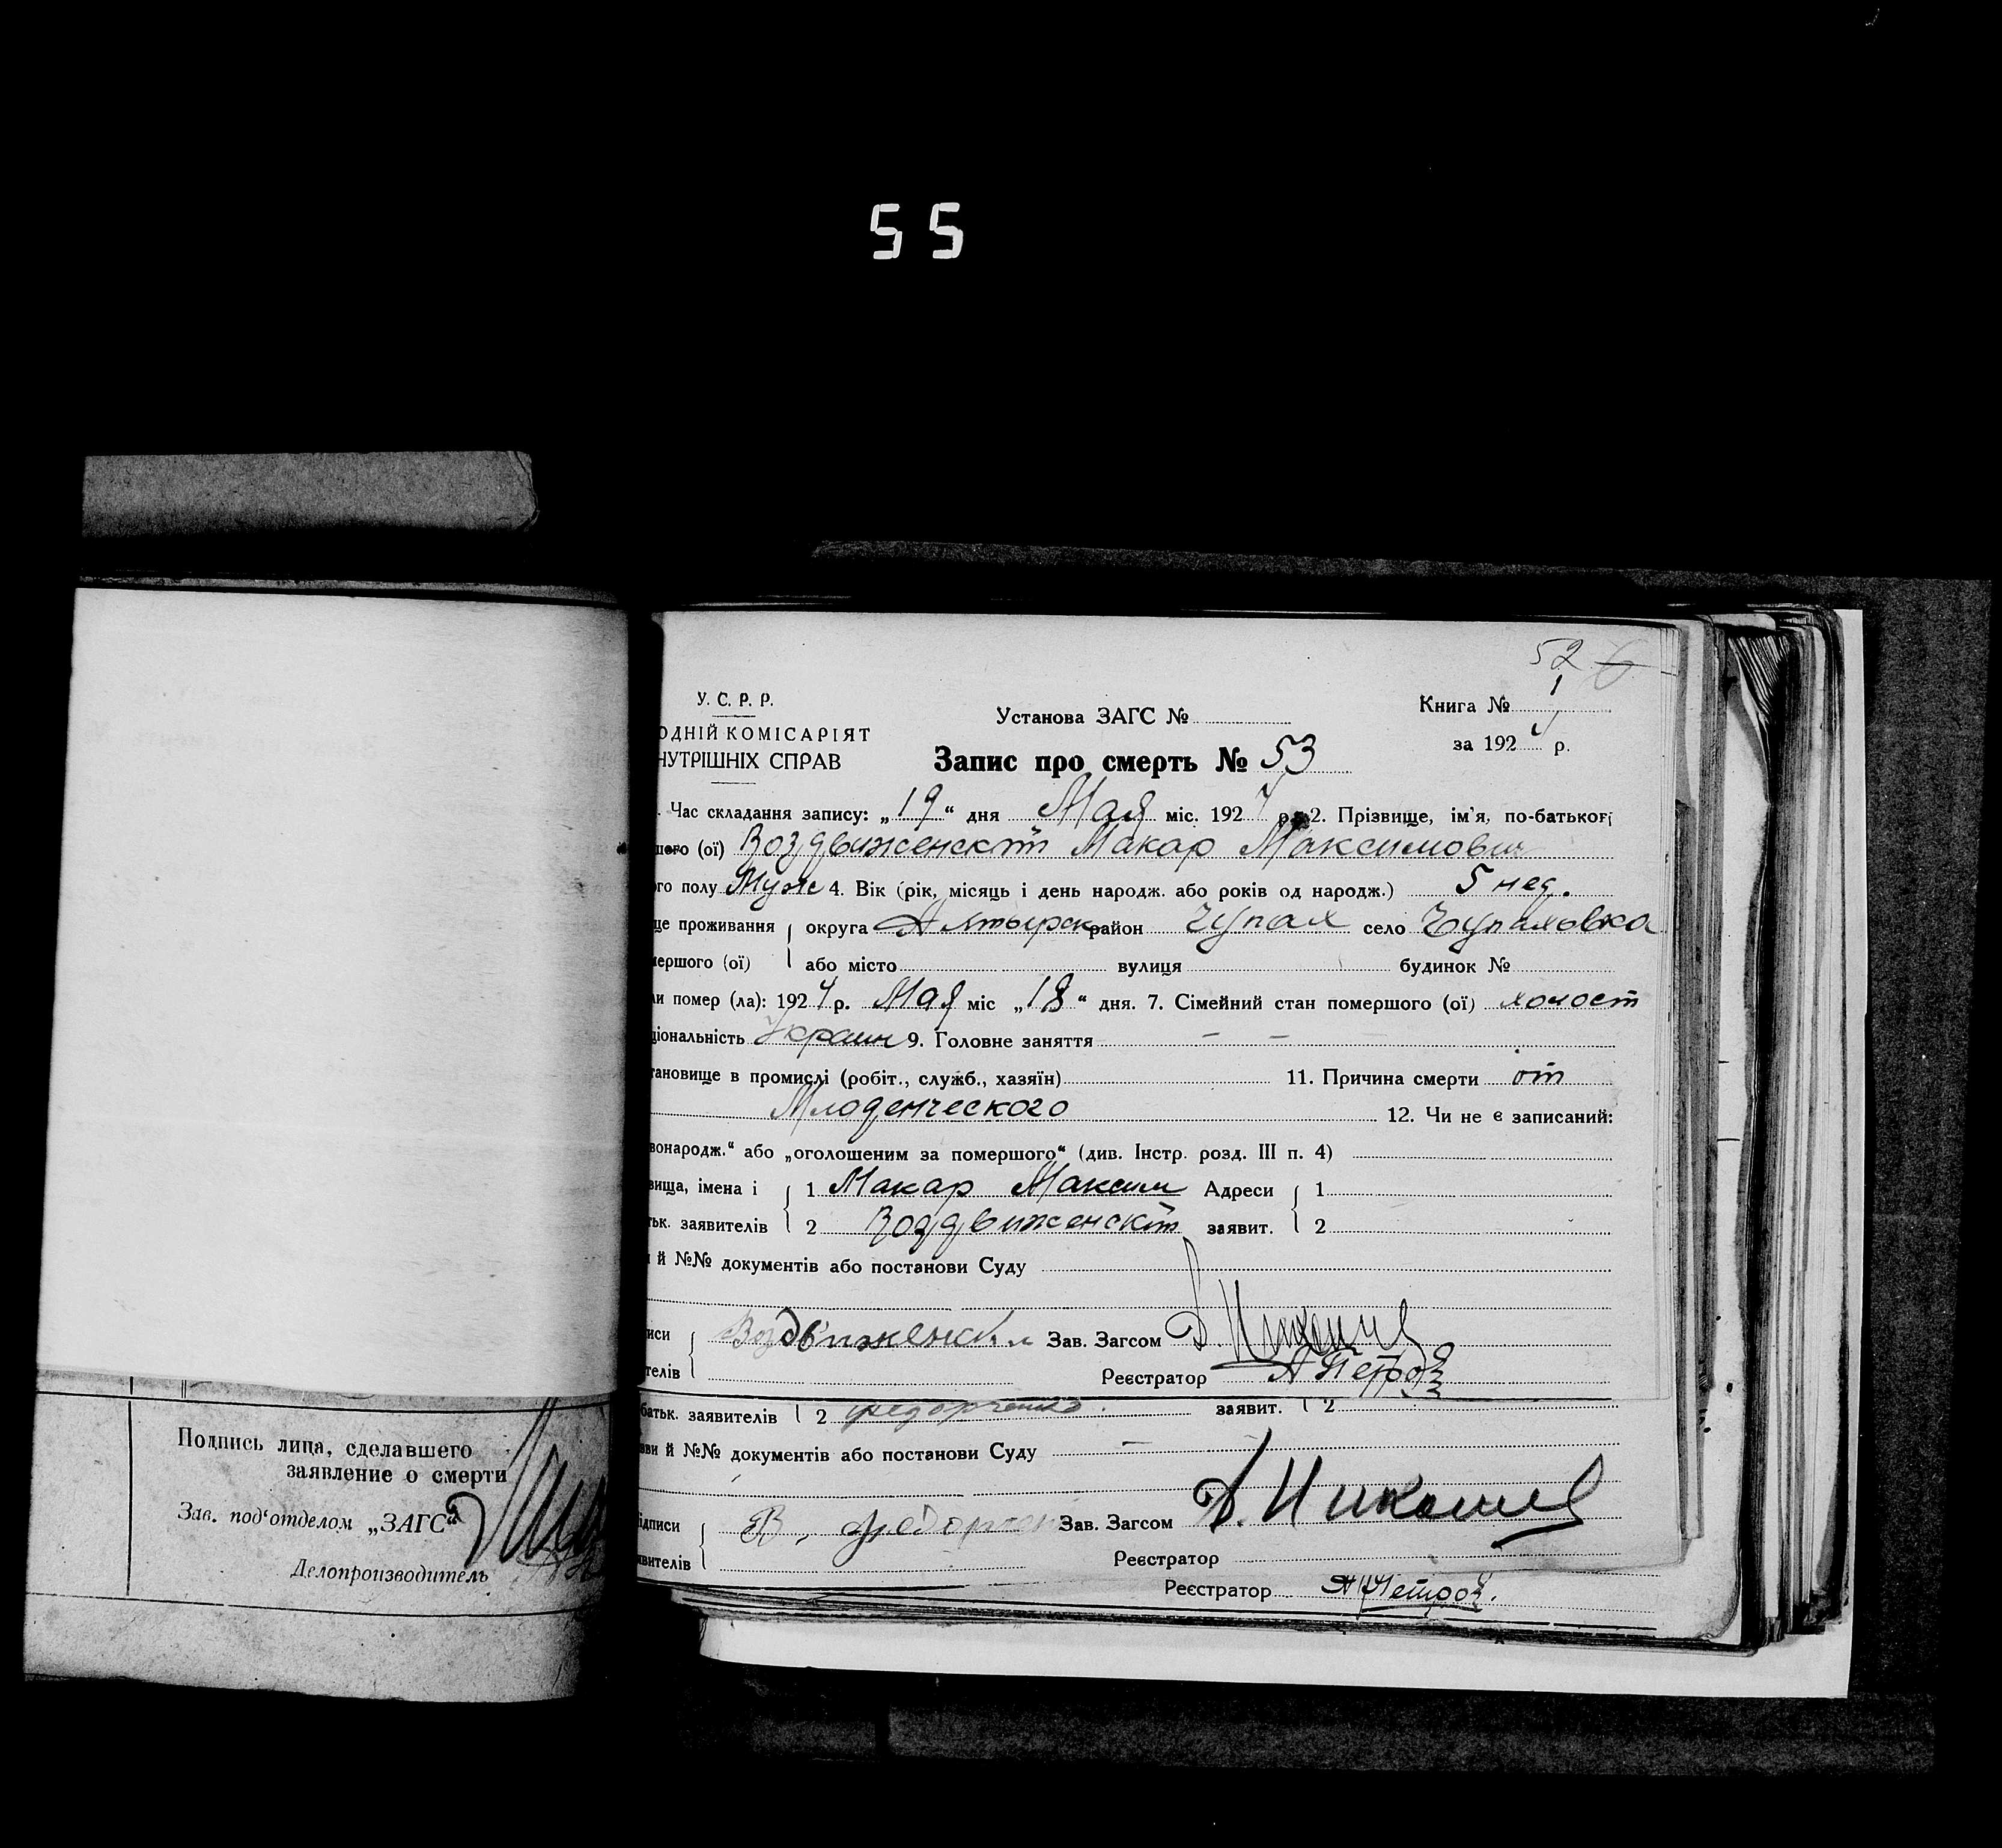 55
52 6
У. С. Р. Р.
ОДНІЙ КОМІСАРІЯТ
НУТРІШНІХ СПРАВ
Установа ЗАГС №
Книга № 1
за 1924 р.
Запис про смерть № 53
. Час складання запису: „19“ дня Мая міс. 1924 р. 2. Прізвище, ім'я, по-батькові
шого (ої) Воздвиженскій Макар Максимович
ого полу Муж 4. Вік (рік, місяць і день народж. або років од народж.) 5 нед.
це проживання округа Ахтырск район Чупах село Чупаховка
мершого (ої) або місто вулиця будинок №
ли помер (ла): 1924 р. Мая міс „18“ дня. 7. Сімейний стан помершого (ої) холост
ціональність Украин 9. Головне заняття — —
тановище в промислі (робіт., служб., хазяїн) 11. Причина смерти от
Младенческого 12. Чи не є записаний:
вонародж.“ або „оголошеним за помершого“ (див. Інстр. розд. III п. 4)
вища, імена і 1 Макар Максим Адреси 1
тьк. заявителів 2 Воздвиженскій заявит. 2
и й №№ документів або постанови Суду
иси Воздвиженски Зав. Загсом
телів Реєстратор А Петров
батьк. заявителів 2 Федорченко. заявит. 2
зви й №№ документів або постанови Суду —
ідписи В. Федорчен Зав. Загсом
явителів Реєстратор
Реєстратор А Петров.
Подпись лица, сделавшего
заявление о смерти
Зав. под‘отделом „ЗАГС“
Делопроизводитель